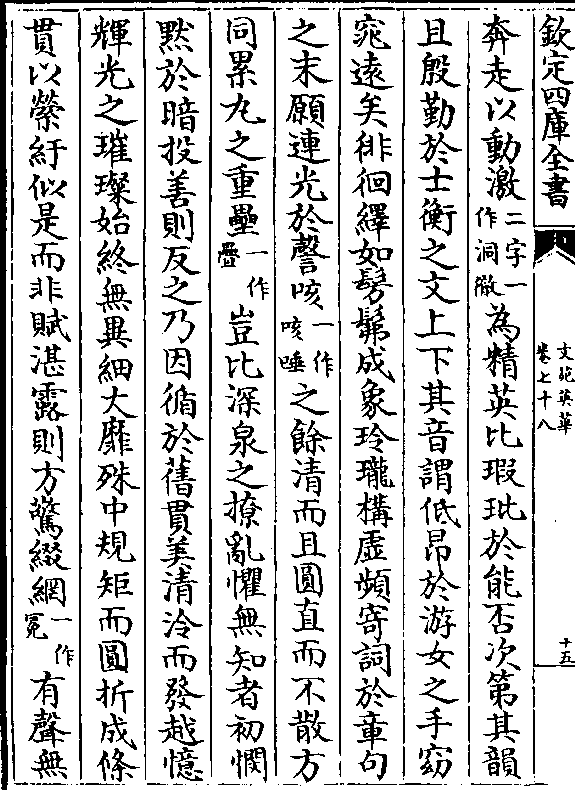 欽定四庫全書
文苑英華
卷七十八
十五
奔走以動激二字一作洞徹為精英比瑕玼於能否次第其韻
且殷勤於士衡之文上下其音謂低昂於游女之手窈
窕遠矣徘徊繹如髣髴成象玲瓏構虛頻寄詞於章句
之末願連光於謦咳一作咳唾之餘清而且圓直而不散方
同累丸之重壘一作疊豈比深泉之撩亂懼無知者初憫
黙於暗投善則反之乃因循於舊貫美清泠而發越憶
輝光之璀璨始終無異細大靡殊中規矩而圓折成條
貫以縈紆似是而非賦湛露則方驚綴網一作冕有聲無